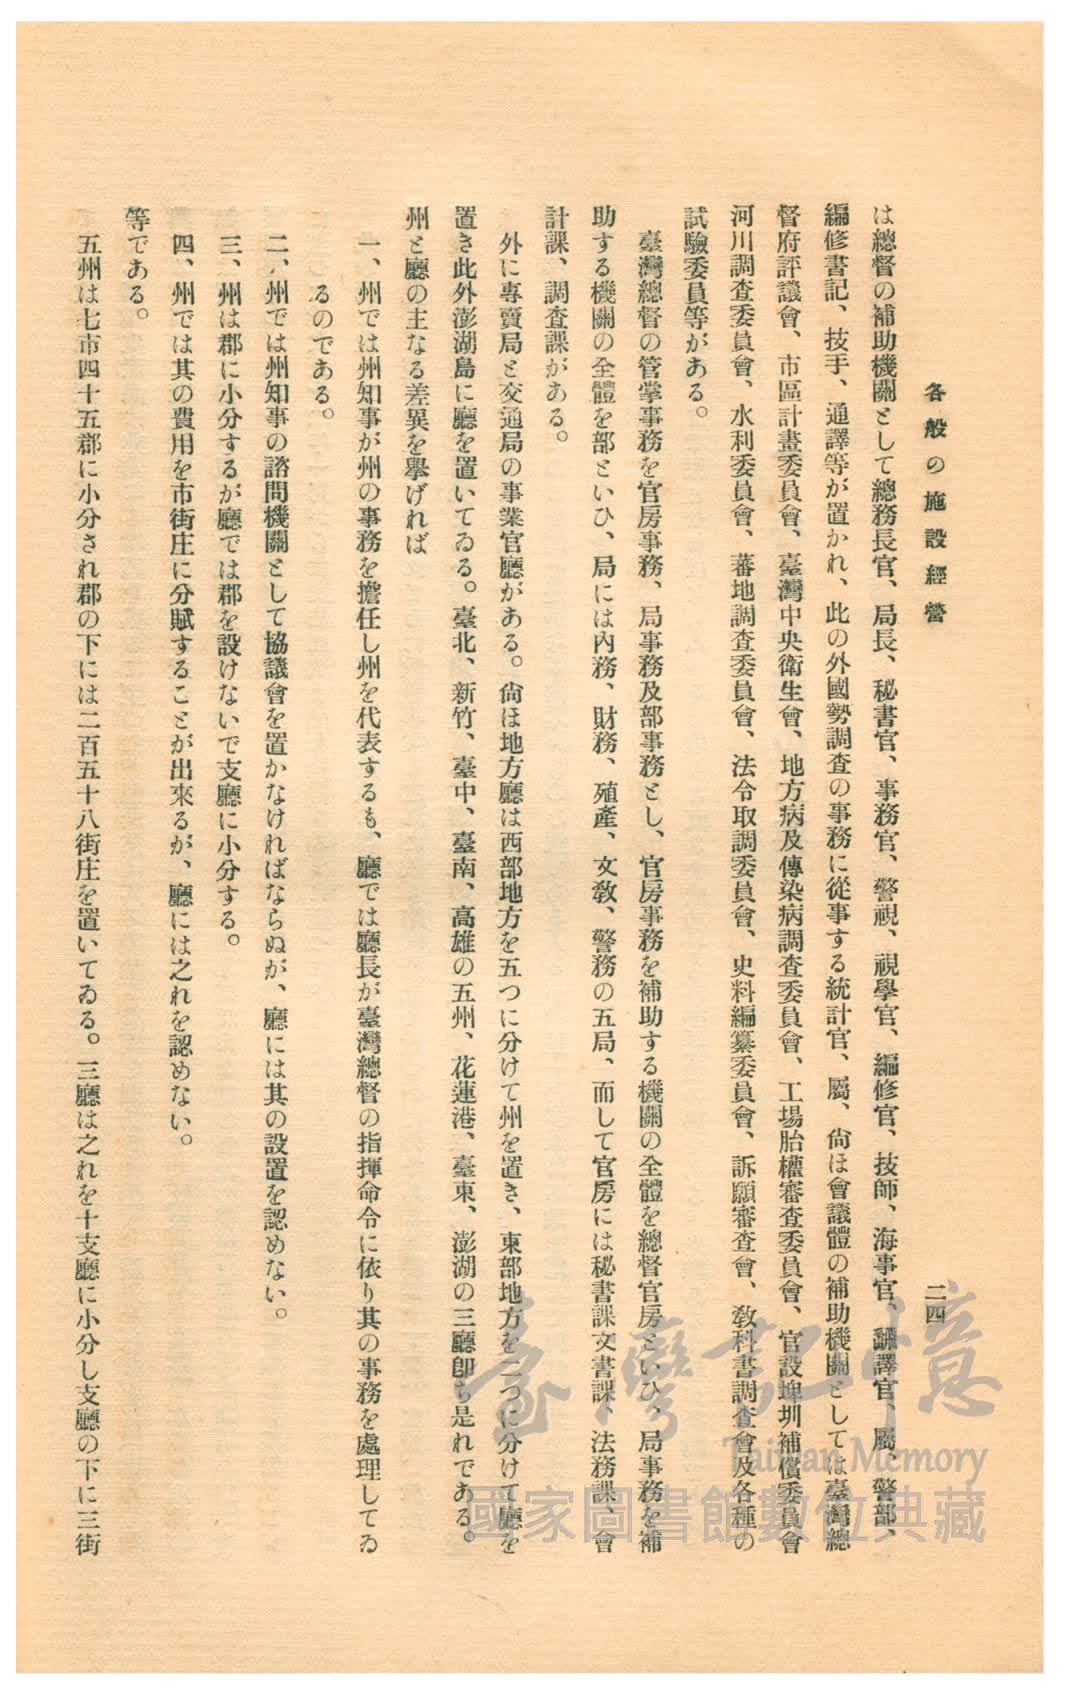 各般の施設經營
二四
は總督の補助機關として總務長官、局長、秘書官、事務官、警視、視學官、編修官、技師、海事官、飜譯官、屬、警部、
編修書記、技手、通譯等が置かれ、此の外國勢調査の事務に從事する統計官、屬、尙ほ會議體の補助機關としては臺灣總
督府評議會、市區計畫委員會、臺灣中央衞生會、地方病及傳染病調査委員會、工場胎權審査委員會、官設埤圳補償委員會
河川調査委員會、水利委員會、蕃地調査委員會、法令取調委員會、史料編纂委員會、訴願審査會、敎科書調査會及各種の
試驗委員等がある。
臺灣總督の管掌事務を官房事務、局事務及部事務とし、官房事務を補助する機關の全體を總督官房といひ、局事務を補
助する機關の全體を部といひ、局には內務、財務、殖產、文敎、警務の五局、而して官房には秘書課文書課、法務課、會
計課、調査課がある。
外に專賣局と交通局の事業官廳がある。尙ほ地方廳は西部地方を五つに分けて州を置き、東部地方を二つに分けて廳を
置き此外澎湖島に廳を置いてゐる。臺北、新竹、臺中、臺南、高雄の五州、花蓮港、臺東、澎湖の三廳卽ち是れである。
州と廳の主なる差異を擧げれば
一、州では州知事が州の事務を擔任し州を代表するも、廳では廳長が臺灣總督の指揮命令に依り其の事務を處理してゐ
るのである。
二、州では州知事の諮問機關として協議會を置かなければならぬが、廳には其の設置を認めない。
三、州は郡に小分するが廳では郡を設けないで支廳に小分する。
四、州では其の費用を市街庄に分賦することが出來るが、廳には之れを認めない。
等である。
五州は七市四十五郡に小分され郡の下には二百五十八街庄を置いてゐる。三廳は之れを十支廳に小分し支廳の下に三街
臺灣記憶
Taiwan Memory
國家圖書館數位典藏